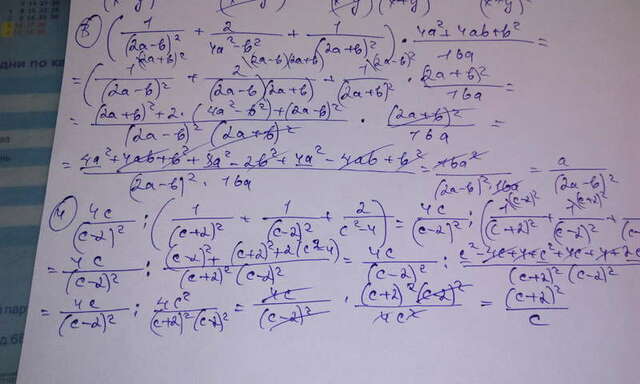 3) (1/(2a-b)² + 2/(4a²-b²) + 1/(2a+b)²) · (4a²+4ab+b²)/16a =
= (1\(2a+b)²/(2a-b)² + 2\(2a-b)(2a+b)/(2a-b)(2a+b) + 1\(2a-b)²/(2a+b)²) · (2a+b)²/16a =
= ((2a+b)²+2·(4a²-b²)+(2a-b)²)/((2a-b)²(2a+b)²) · (2a+b)²/16a =
= (4a²+4ab+b²+8a²-2b²+4a²-4ab+b²)/((2a-b)²·16a) = 16a²/((2a-b)²·16a) = a/(2a-b)²
4) 4c/(c-2)² : (1/(c+2)² + 1/(c-2)² + 2/(c²-4)) = 4c/(c-2)² : (1\(c-2)²/(c+2)² + 1\(c+2)²/(c-2)² +
= 4c/(c-2)² : ((c-2)²+(c+2)²+2(c²-4))/((c+2)²(c-2)²) = 4c/(c-2)² : (c²-4c+4+c²+4c+4+2c
= 4c/(c-2)² : 4c²/((c+2)²(c-2)²) = 4c/(c-2)² · ((c+2)²(c-2)²)/4c² = (c+2)²/c